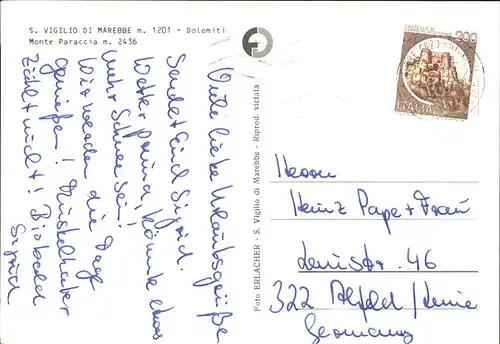 S. VIGILIO DI MAREBBE m. 1201 - Dolomiti
Monte Paraccia m. 2436
Viele liebe Urlaubsgrüße
Sendet Euch Sigrid.
Wetter prima, könnte etwas
mehr Schnee sein!
Wir werden die Tage
genießen!
nicht! Bis bald
Sigrid
Foto ERLACHER - S. Vigilio di Marebbe - Riprod. vietata
200
ITALIA
Herrn
Heinz Pape + Frau
46
322 Alfeld/Leine
Germany